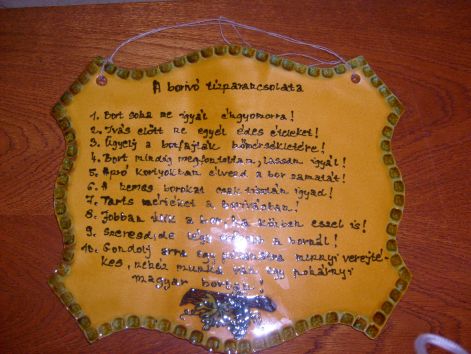 A borivó tízparancsolata
1. Bort soha ne igyál éhgyomorra!
2. Ivás előtt ne egyél édes ételeket!
3. Ügyelj a borfajták hőmérsékletére!
4. Bort mindig megfontoltan, lassan igyál!
5. Apró kortyokban élvezd a bor zamatát!
6. A nemes borokat csak tisztán igyad!
7. Tarts mértéket a borivásban!
8. Jobban ízlik a bor, ha közben eszel is!
9. Szeresd, de
10. Gondolj arra egy mennyi verejté-
kes, nehéz munka van egy pohárnyi
magyar borban!